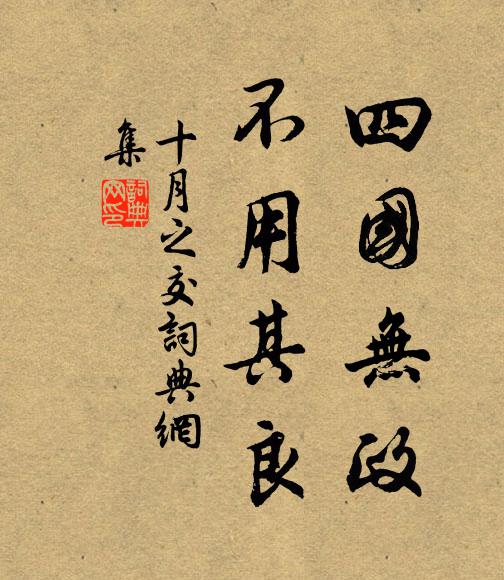 四國無政
不用其良
十月之交詞典網
集
詞典
网印